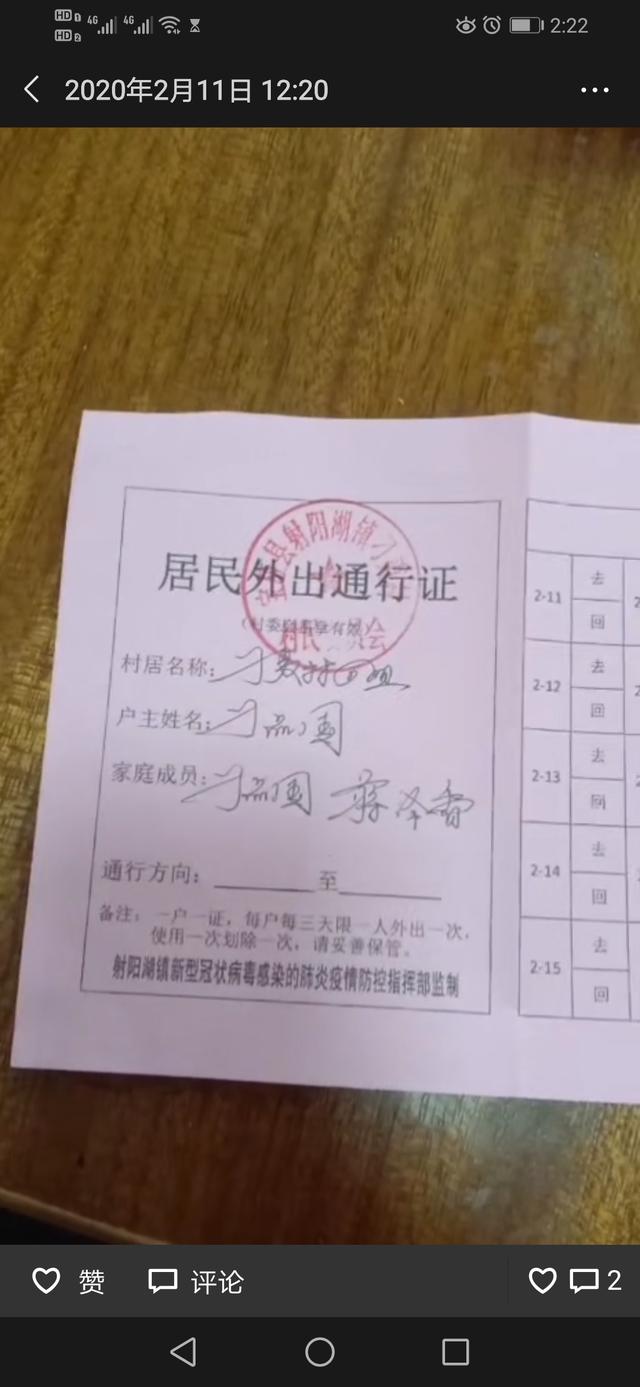 HD 1 4G 4G HD 2 2:22
2020年2月11日 12:20
县射阳湖镇刁
居民外出通行证
(村委会盖章有效)
村居名称:
户主姓名:刁品国
家庭成员:刁品国 蒋泽香
通行方向: 至
备注:一户一证,每户每三天限一人外出一次,
使用一次划除一次,请妥善保管。
射阳湖镇新型冠状病毒感染的肺炎疫情防控指挥部监制
2-11 去
回
2-12 去
回
2-13 去
回
2-14 去
回
2-15 去
回
赞 评论 2